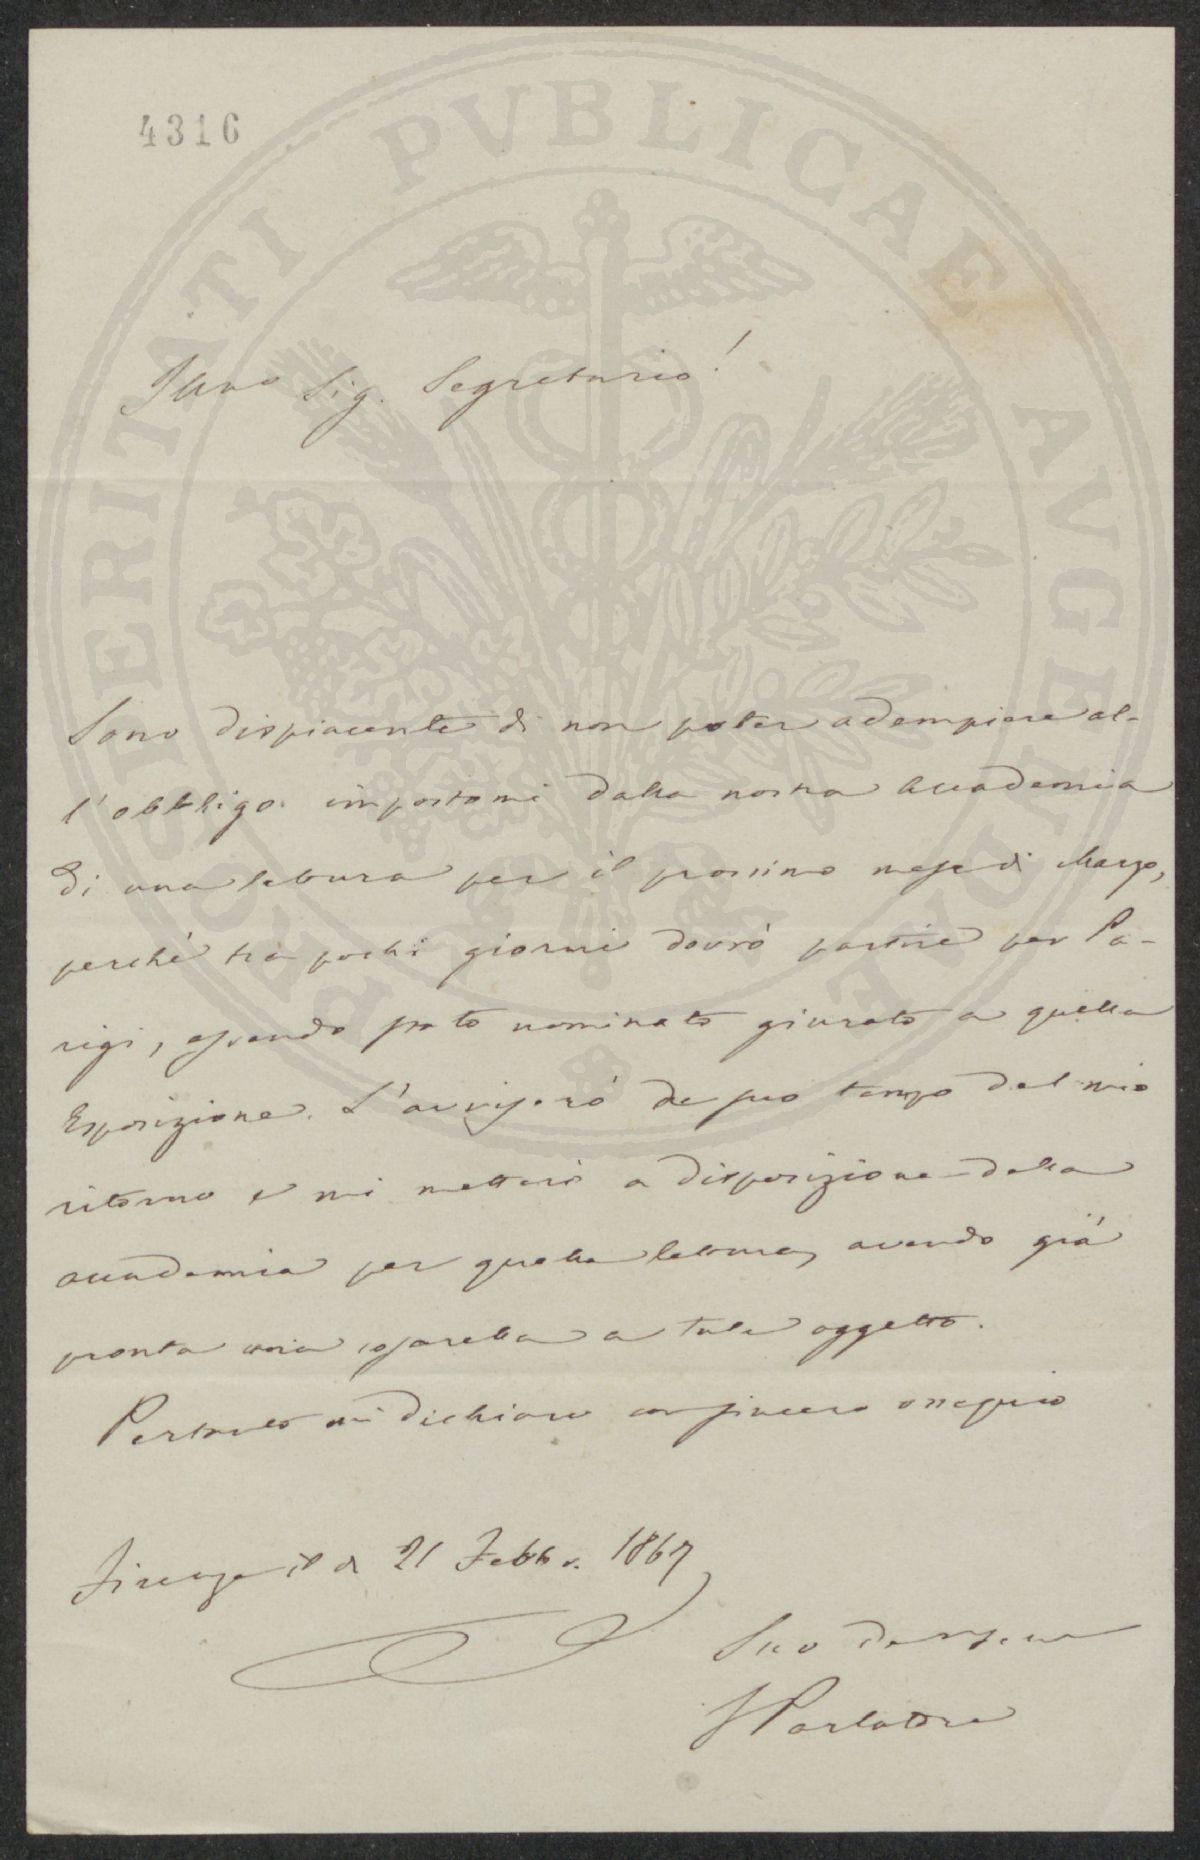 4316
PROSPERITATI PVBLICAE AVGENDAE
Illmo Sig. Segretario!
Sono dispiacente di non poter adempiere al-
l'obbligo impostomi dalla nostra Accademia
di una lettura per il prossimo mese di Marzo,
perchè tra pochi giorni dovrò partire per Pa-
rigi, essendo stato nominato giurato a quella
Esposizione. L'avviserò a suo tempo del mio
ritorno e mi metterò a disposizione della
accademia per quella lettura, avendo già
pronta una cosarella a tale oggetto.
Pertanto mi dichiaro con sincero ossequio
Firenze il dì 21 Febb. 1867
Suo
FParlatore